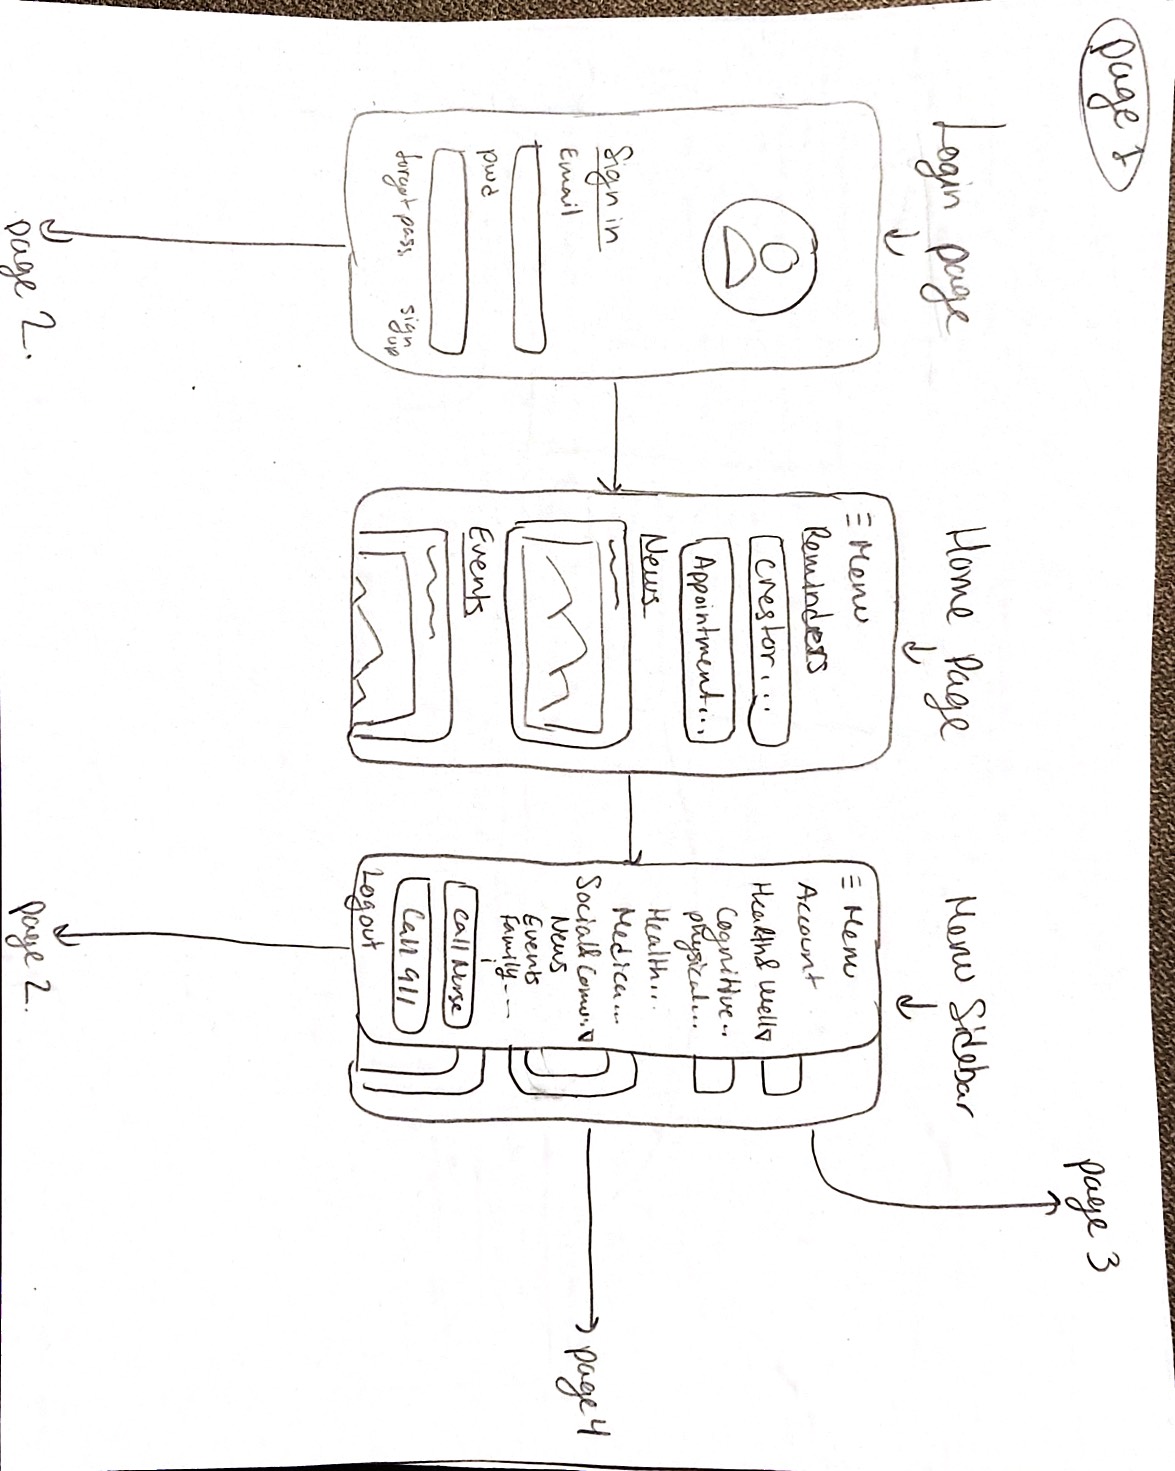 page 1
Login page
Sign in
Email
pwd
forgot pass
sign
up
page 2.
Home Page
≡ Menu
Reminders
Crestor...
Appointment...
News
Events
Menu Sidebar
≡ Menu
Account
Health& Well▽
Cognitive...
physical...
Health...
Medica...
Social& Comm.▽
News
Events
Family...
Call Nurse
Call 911
Logout
page 2.
page 3
page 4